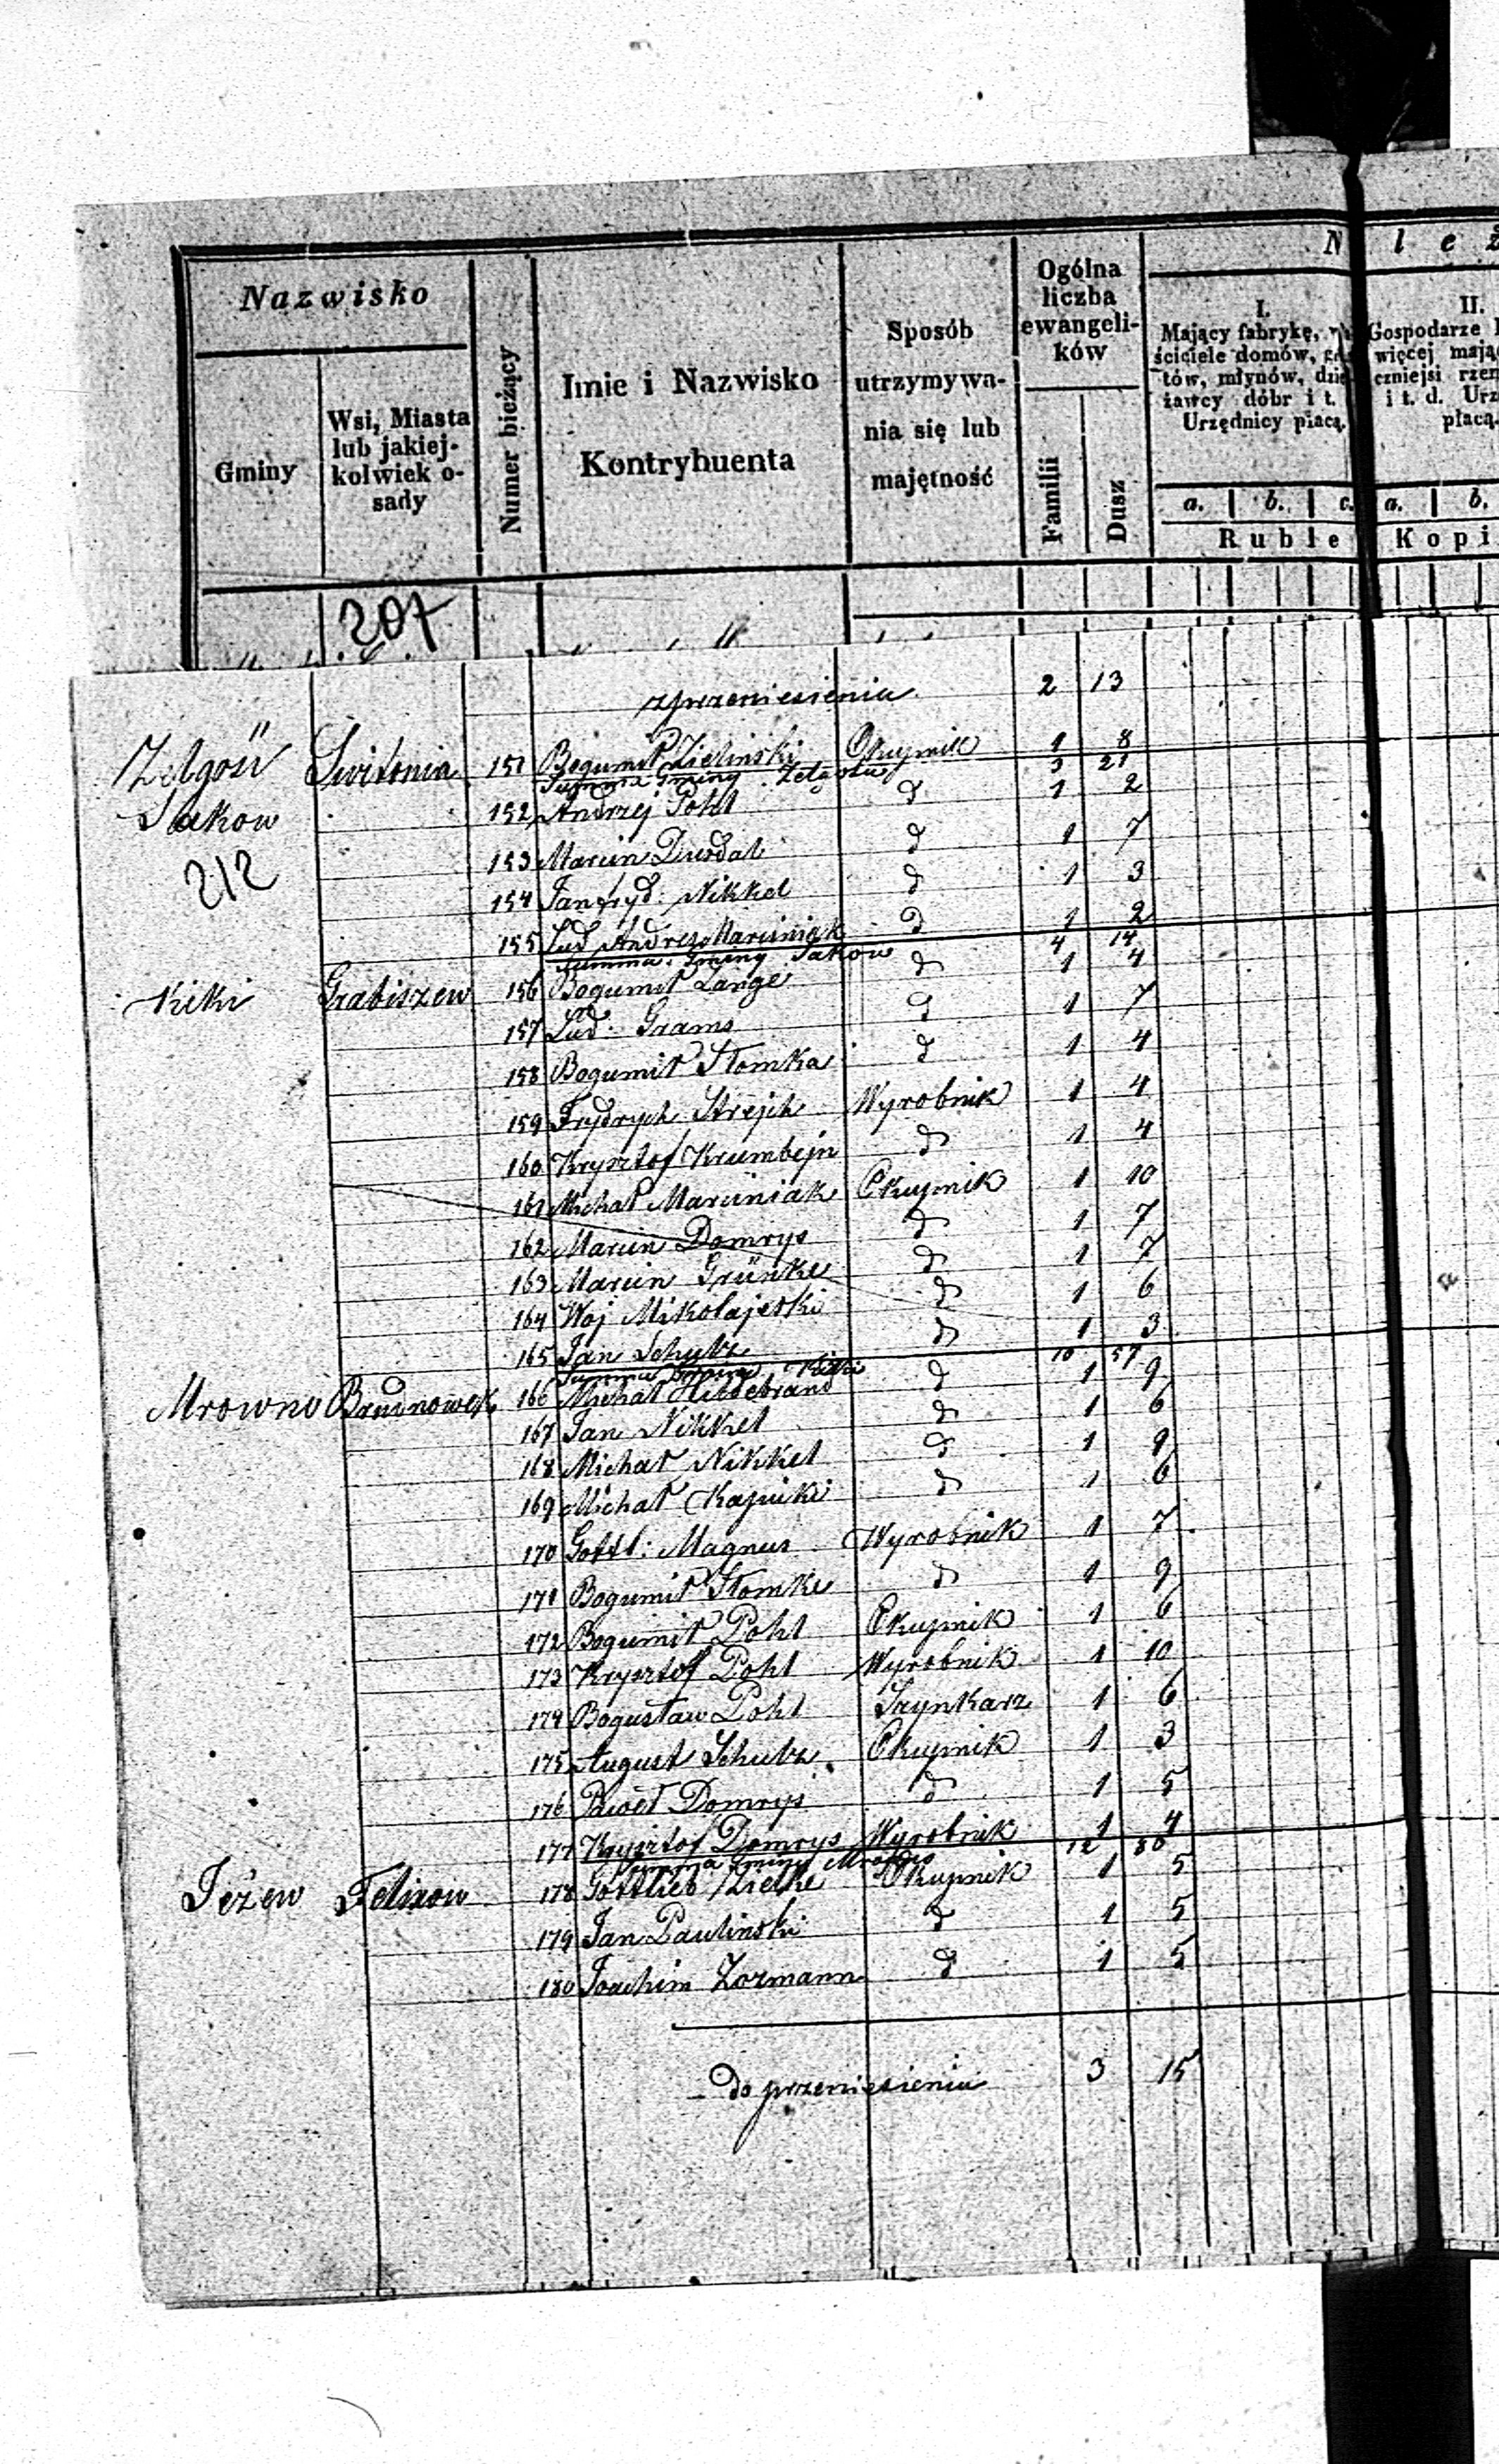 Nazwisko
Gminy
Wsi, Miasta
lub jakiej-
kolwiek o-
sady
Numer bieżący
Imie i Nazwisko
Kontrybuenta
Sposób
utrzymywa-
nia się lub
majętność
Ogólna
liczba
ewangeli-
ków
Familii
Dusz
N l e ż
I.
Mający fabrykę,
ściciele domów,
tów, młynów,
żawcy dóbr i t.
Urzędnicy płacą.
II.
Gospodarze
więcej mają
czniejsi rzem
i t. d. Urz
płacą.
a. b. c. a. b.
Ruble Kopi
207
z przeniesienia 2 13
Zelgość Switonia 151 Bogumił Zielinski Okupnik 1 8
Summa Gminy 3 21
Sakow 152 Andrzej Pohl d 1 2
212
153 Marcin d 1 7
154 Jan fryd: Nikkel d 1 3
155 Lud Andrzej Marciniak d 1 2
Summa Gminy Sakow 4 14
Kiki Grabiszew 156 Bogumił Lange d 1 4
157 Lud: Grams d 1 7
158 Bogumił Słomka d 1 4
159 Frydrych Strejch Wyrobnik 1 4
160 Krysztof Krumbejn d 1 4
161 Michał Marciniak Okupnik 1 10
162 Marcin Domrys d 1 7
163 Marcin Grünke d 1 7
164 Woj Mikołajeski d 1 6
165 Jan Schulz d 1 3
Summa Gminy Kiki 10 57
Mrowno Brudnowek 166 Michał Hildebrand d 1 9
167 Jan Nikkel d 1 6
168 Michał Nikkel d 1 9
169 Michał d 1 6
170 Gottl: Magnus Wyrobnik 1 7
171 Bogumił Słomke d 1 9
172 Bogumił Pohl Okupnik 1 6
173 Krysztof Pohl Wyrobnik 1 10
174 Bogusław Pohl Szynkarz 1 6
175 August Schulz Okupnik 1 3
176 Paweł Domrys d 1 5
177 Krysztof Domrys Wyrobnik 1 4
Summa Gminy Mrowno 12 80
Jeżew Felixow 178 Gottlieb Zielke Okupnik 1 5
179 Jan Paulinski d 1 5
180 Joachim Zormann d 1 5
do przeniesienia 3 15